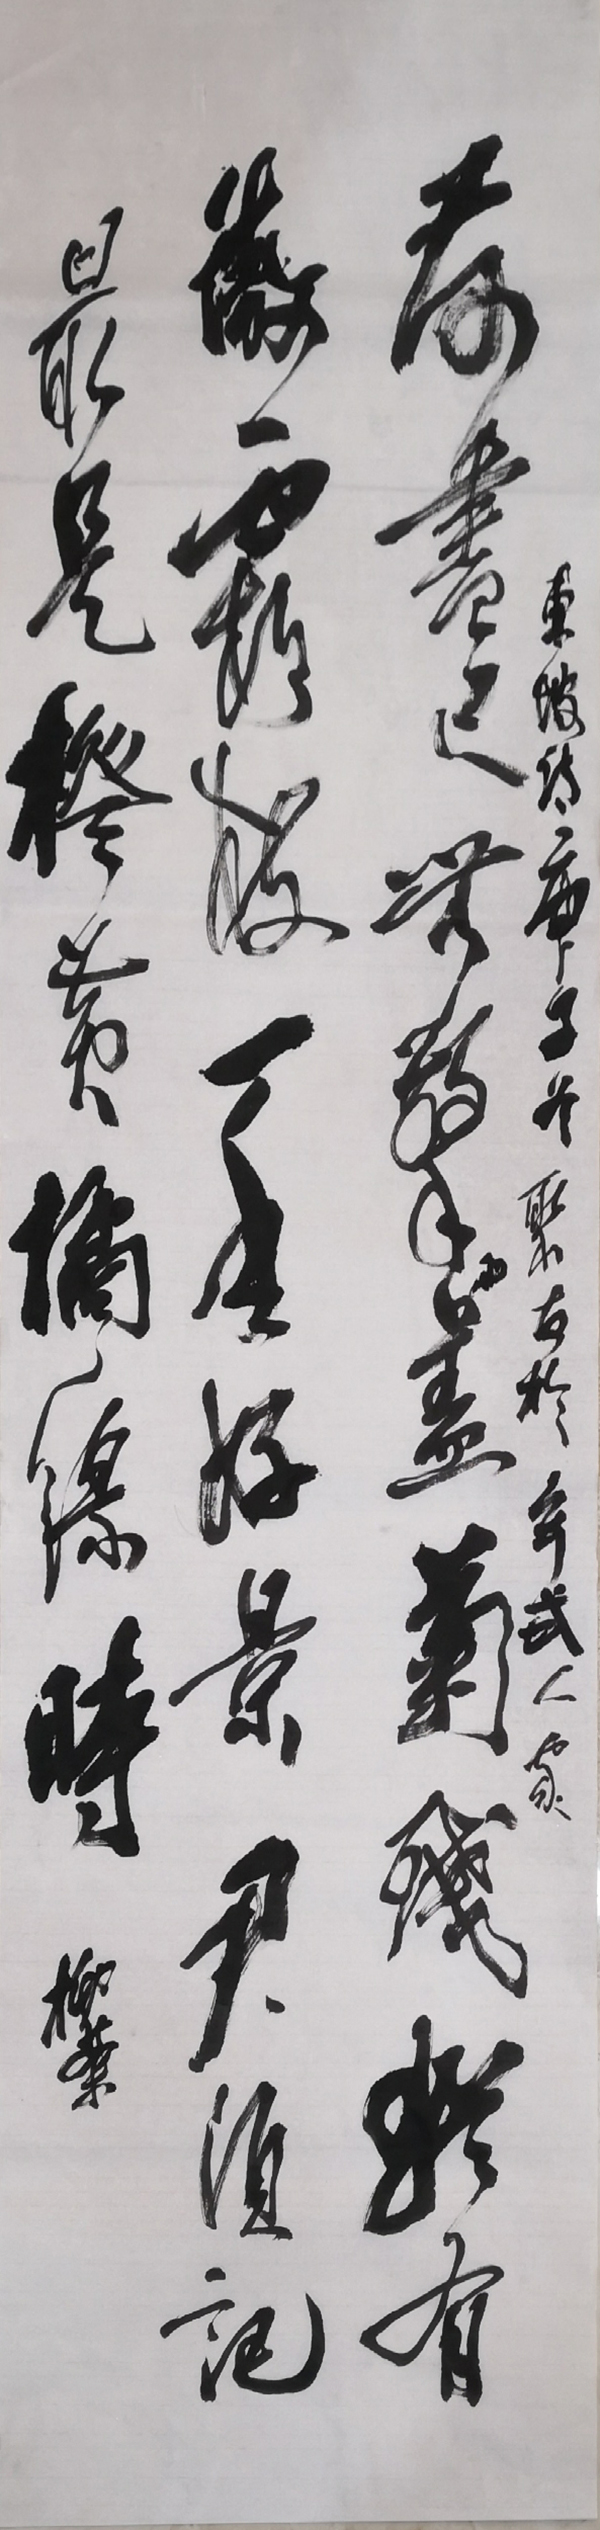 東坡詩庚子冬聚友於武人家
荷盡已無擎雨蓋菊殘猶有
傲霜枝一年好景君須記
最是橙黃橘綠時